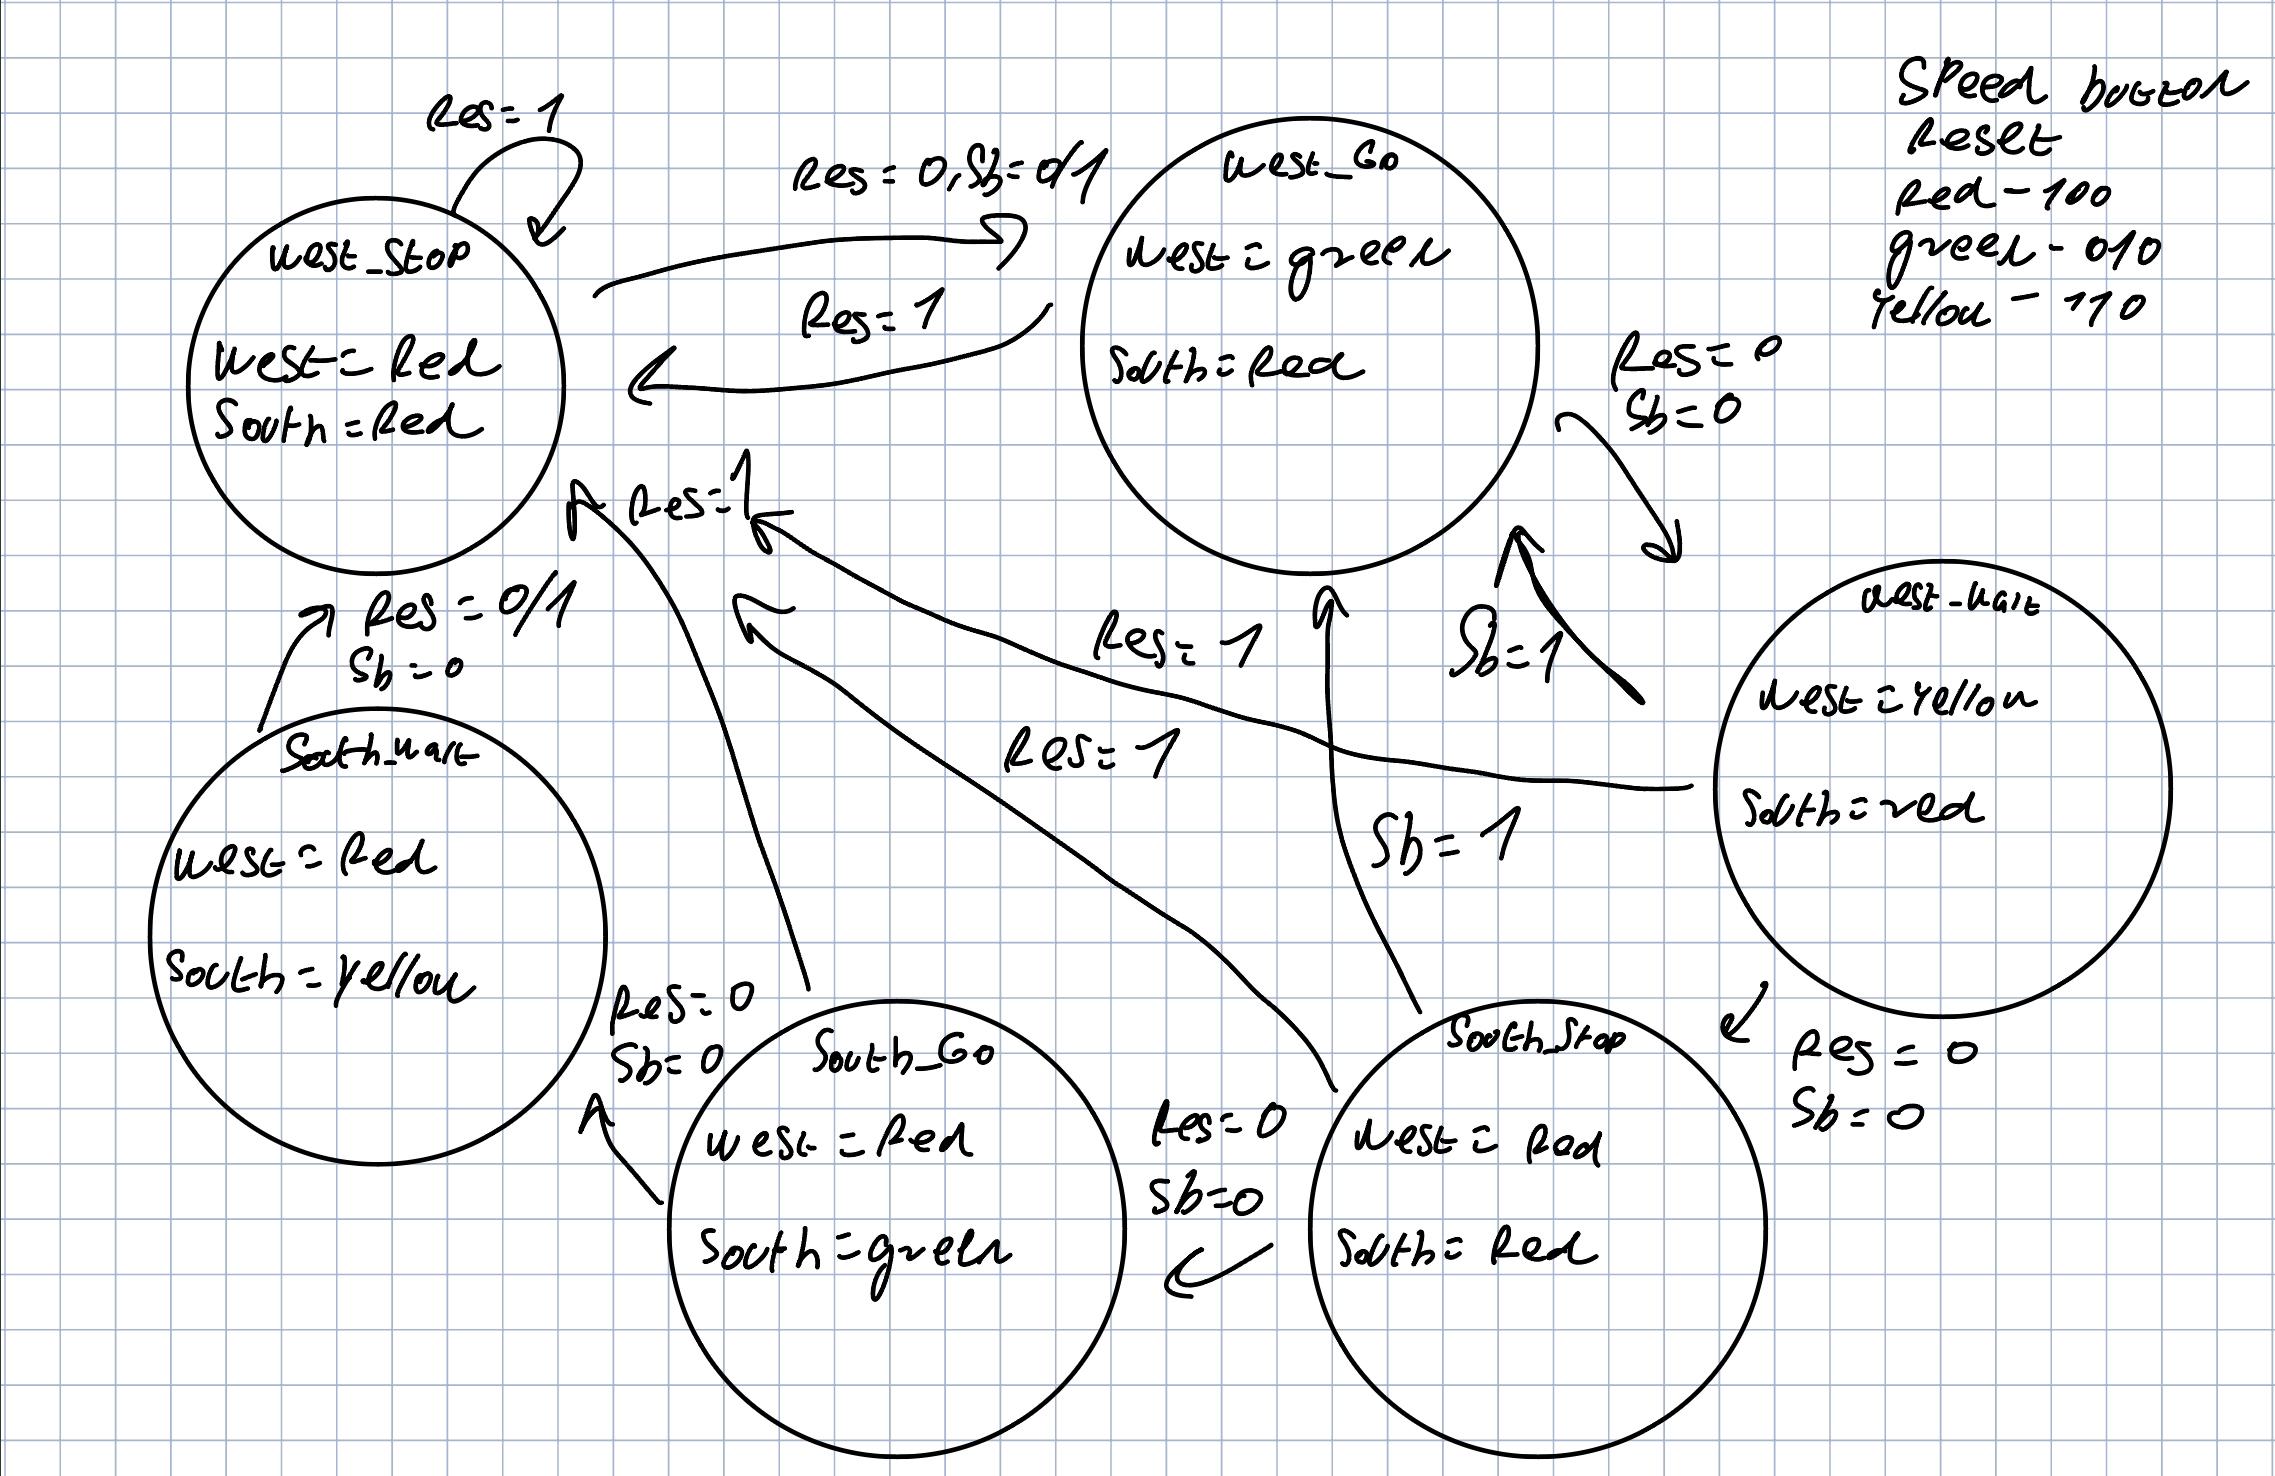 Speed button
Reset
Red - 100
green - 010
Yellow - 110
Res = 1
West_Stop
West = Red
South = Red
Res = 0, Sb = 0/1
Res = 1
West_Go
West = green
South = Red
Res = 0
Sb = 0
Res = 1
Res = 0/1
Sb = 0
Res = 1
Sb = 1
West_Wait
West = Yellow
South = red
Res = 1
Sb = 1
South_Wait
West = Red
South = Yellow
Res = 0
Sb = 0
South_Go
West = Red
South = green
Res = 0
Sb = 0
South_Stop
West = Red
South = Red
Res = 0
Sb = 0